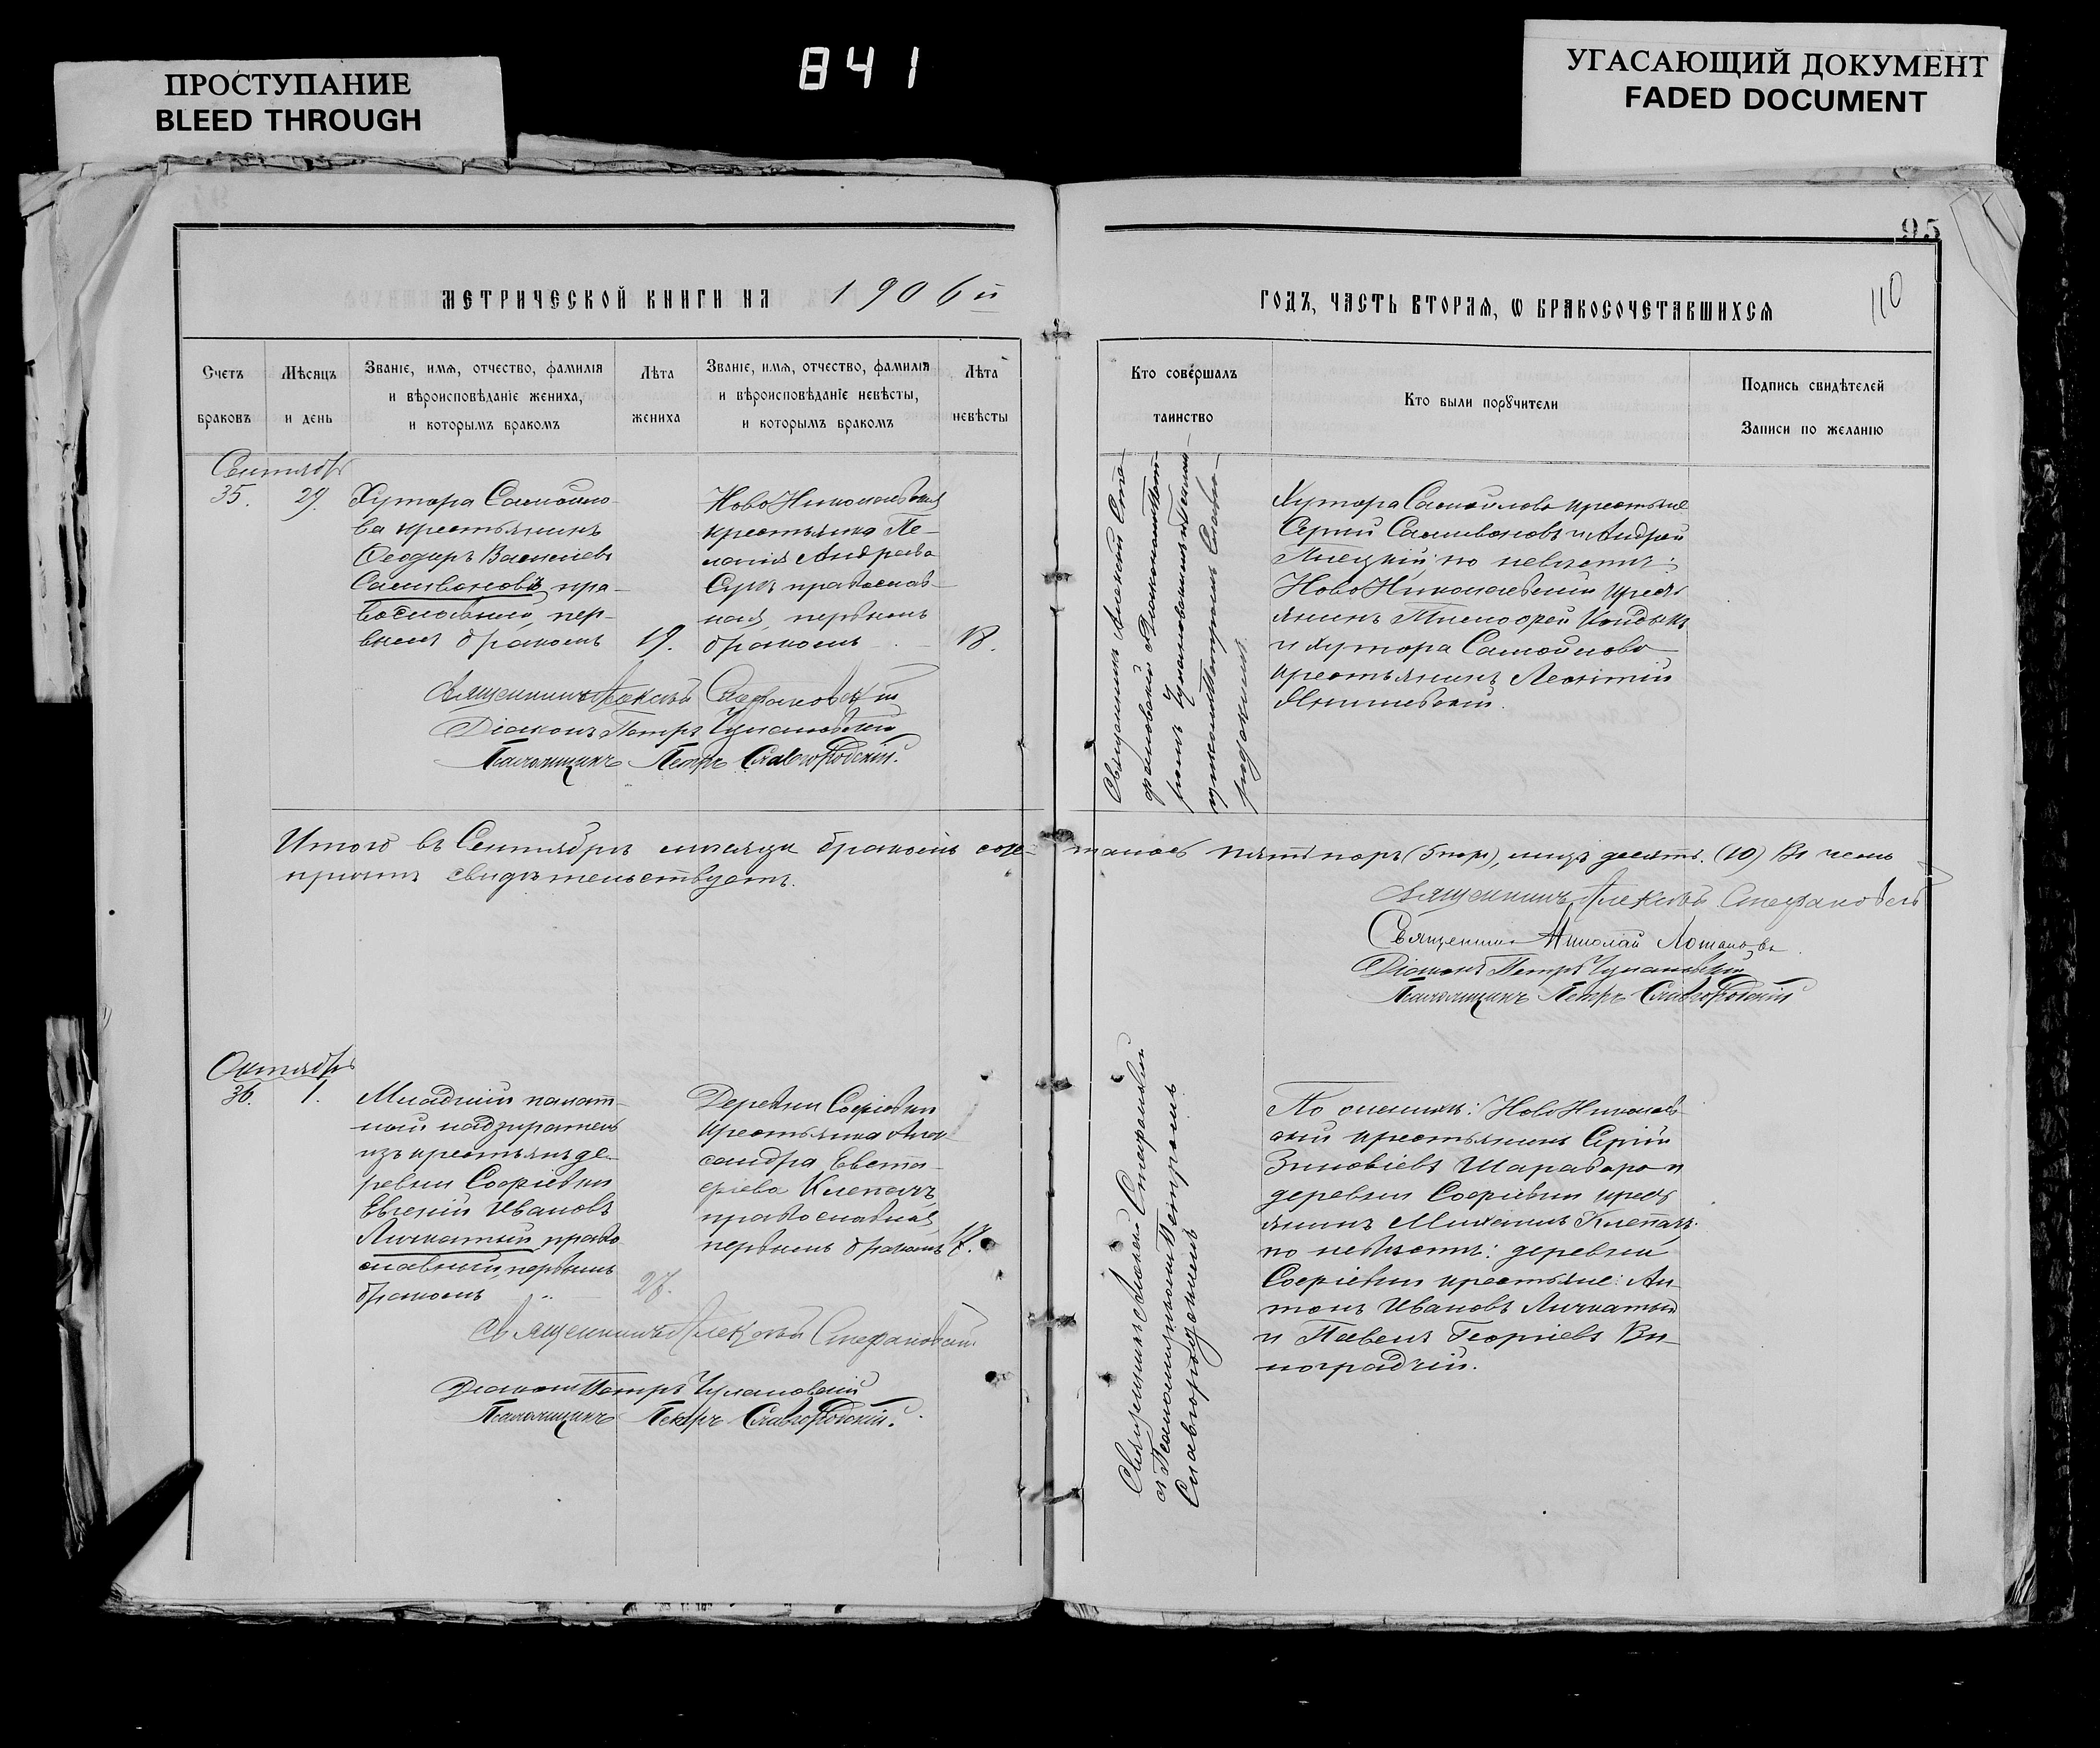 ПРОСТУПАНИЕ
BLEED THROUGH
841
УГАСАЮЩИЙ ДОКУМЕНТ
FADED DOCUMENT
95
110
МЕТРИЧЕСКОЙ КНИГИ НА 1906й
ГОДЪ, ЧАСТЬ ВТОРАѦ, Ѡ БРАКОСОЧЕТАВШИХСѦ
Счетъ браковъ
Мѣсяцъ и день
Званіе, имѧ, отчество, фамилія
и вѣроисповѣданіе жениха,
и которымъ бракомъ
Лѣта жениха
Званіе, имѧ, отчество, фамилія
и вѣроисповѣданіе невѣсты,
и которымъ бракомъ
Лѣта невѣсты
Кто совершалъ
таинство
Кто были порꙋчители
Подпись свидѣтелей
Записи по желанію
Сентябрь
35.
29.
Хутора Самойло-
ва крестьянинъ
Ѳеодоръ Васильевъ
Саливоновъ, пра-
вославный, пер-
вымъ бракомъ
19.
НовоНиколаевская
крестьянка Пе-
лагія Андреева
православ-
ная, первымъ
бракомъ
18.
Священникъ Алексѣй Сте-
фановскій съ Діакономъ Пет-
ромъ Чулановскимъ и Псалом-
щикомъ Петромъ Славго-
родскимъ.
Хутора Самойлова крестьяне
Сергій Саливоновъ и Андрей
по невѣстѣ:
НовоНиколаевскій кресть
янинъ Тимофей
и хутора Самойлова
крестьянинъ Леонтій
Священникъ Алексѣй Стефановскій
Діаконъ Петръ Чулановскій
Псаломщикъ Петръ Славгородскій.
Итого въ Сентябрѣ мѣсяцѣ бракомъ соче-
талось пять паръ (5 паръ), лицъ десять. (10) Въ чемъ
причтъ свидѣтельствуетъ.
Священникъ Алексѣй Стефановскій
Священникъ Николай
Діаконъ Петръ Чулановскій
Псаломщикъ Петръ Славгородскій
Октябрь
36.
1.
Младшій палат-
ный надзиратель
изъ крестьянъ де-
ревни Софіевки
Евгеній Ивановъ
Личкатый, право
славный, первымъ
бракомъ
27.
Деревни Софіевки
крестьянка Алек
сандра Евста-
фіева Клепачъ,
православная
первымъ бракомъ
17.
Священникъ Алексѣй Стефановскій
съ Псаломщикомъ Петромъ
Славгородскимъ
По женихѣ: НовоНиколаев-
скій крестьянинъ Сергій
Зиновіевъ и
деревни Софіевки кресть
янинъ Михаилъ Клепачъ.
по невѣстѣ: деревни
Софіевки крестьяне: Ан-
тонъ Ивановъ Личкатый
и Павелъ Георгіевъ Ви-
ноградчій.
Священникъ Алексѣй Стефановскій
Діаконъ Петръ Чулановскій
Псаломщикъ Петръ Славгородскій.